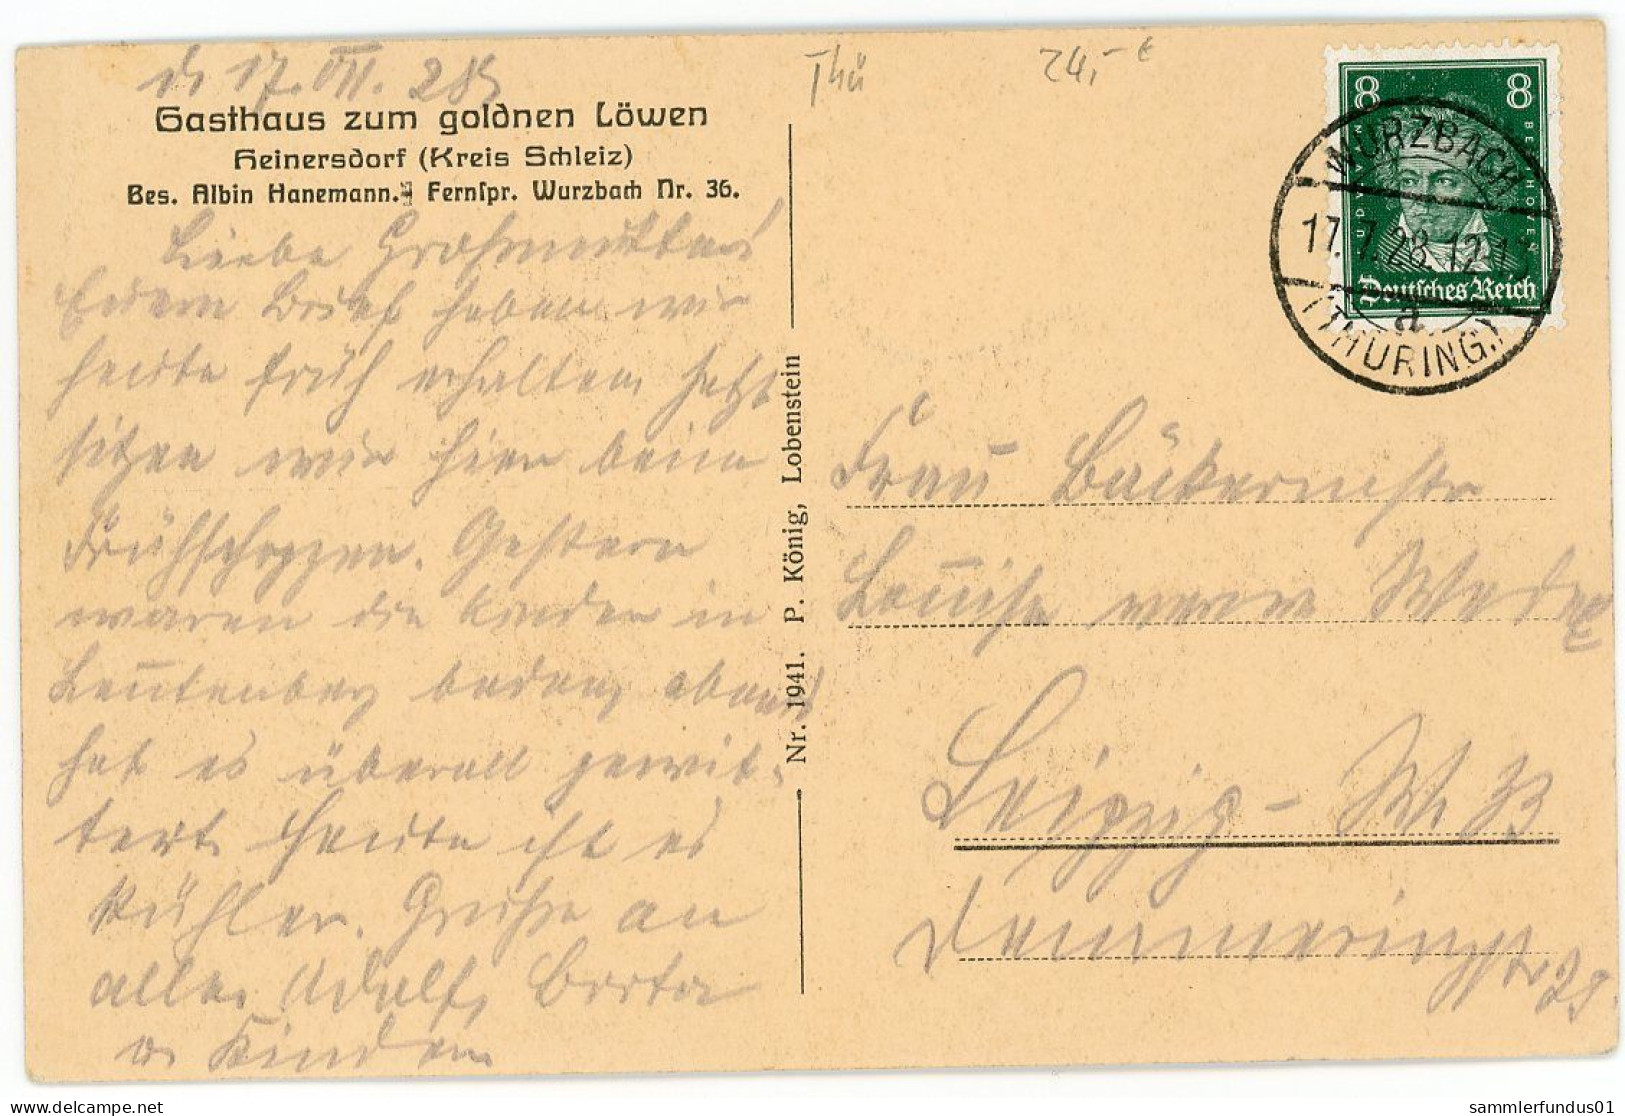 d. 17. VII. 28.
Thü
24,- €
Gasthaus zum goldnen Löwen
Heinersdorf (Kreis Schleiz)
Bes. Albin Hanemann. Fernspr. Wurzbach Nr. 36.
Liebe Großmutter!
Euern Brief haben wir
heute früh erhalten, jetzt
sitzen wir hier beim
Frühschoppen. Gestern
waren die Kinder in
Leutenberg baden, abends
hat es überall gewit-
tert. Heute ist es
kühler. Grüße an
alle. Adolf, Berta
u. Kinder
Nr. 1941. P. König, Lobenstein
8 8
LUDWIG VAN BEETHOVEN
Deutsches Reich
WURZBACH
17.7.28.12-13
a
(THÜRING.)
Frau Bäckermstr
Louise verw.
Leipzig - W.
sammlerfundus01